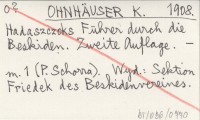 OHNHÄUSER K. 1908.
Hadaszczoks Führer durch die
Beskiden. Zweite Auflage. —
m. 1 (P. Schorra). Wyd.: Sektion
Friedek des Beskidenvereines.